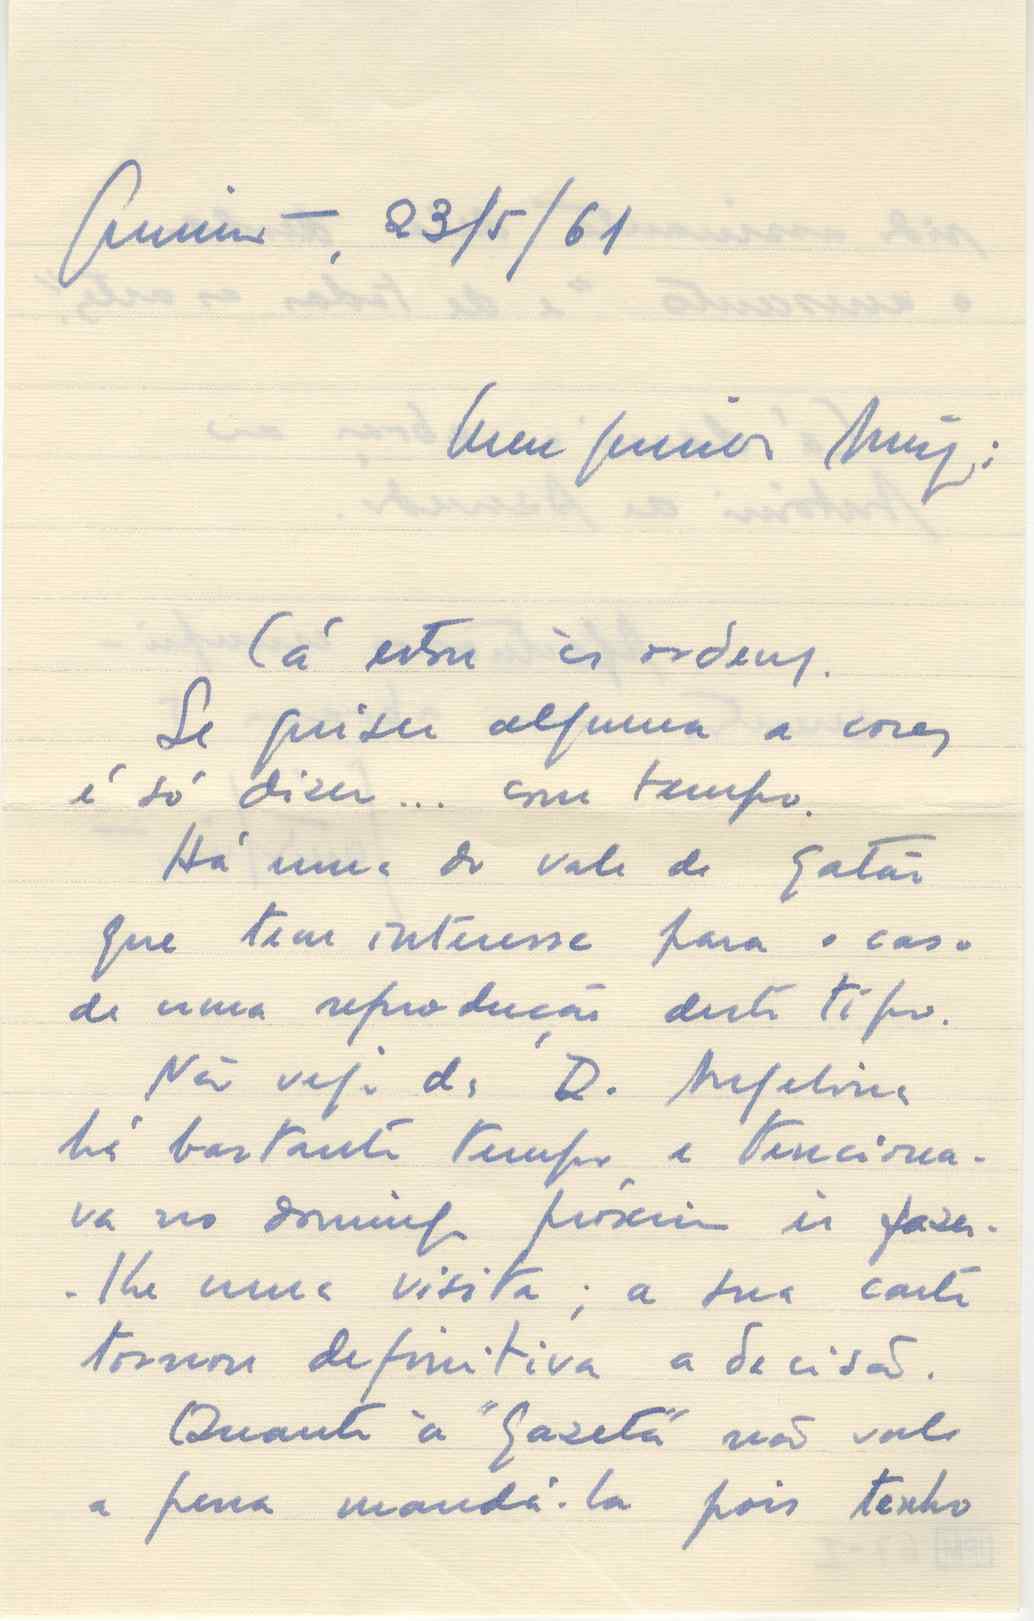 23/5/61
Meu Amigo:
Cá estou às ordens.
Se quiser alguma a cores
é só dizer... com tempo.
Há uma do vale de Gatão
que tem interesse para o caso
de uma reprodução deste tipo.
Não vejo da D. Angelina
há bastante tempo e tenciona-
va no domingo próximo ir fazer-
-lhe uma visita; a sua carta
tornou definitiva a decisão.
Quanto à "Gazeta" não vale
a pena mandá-la pois tenho